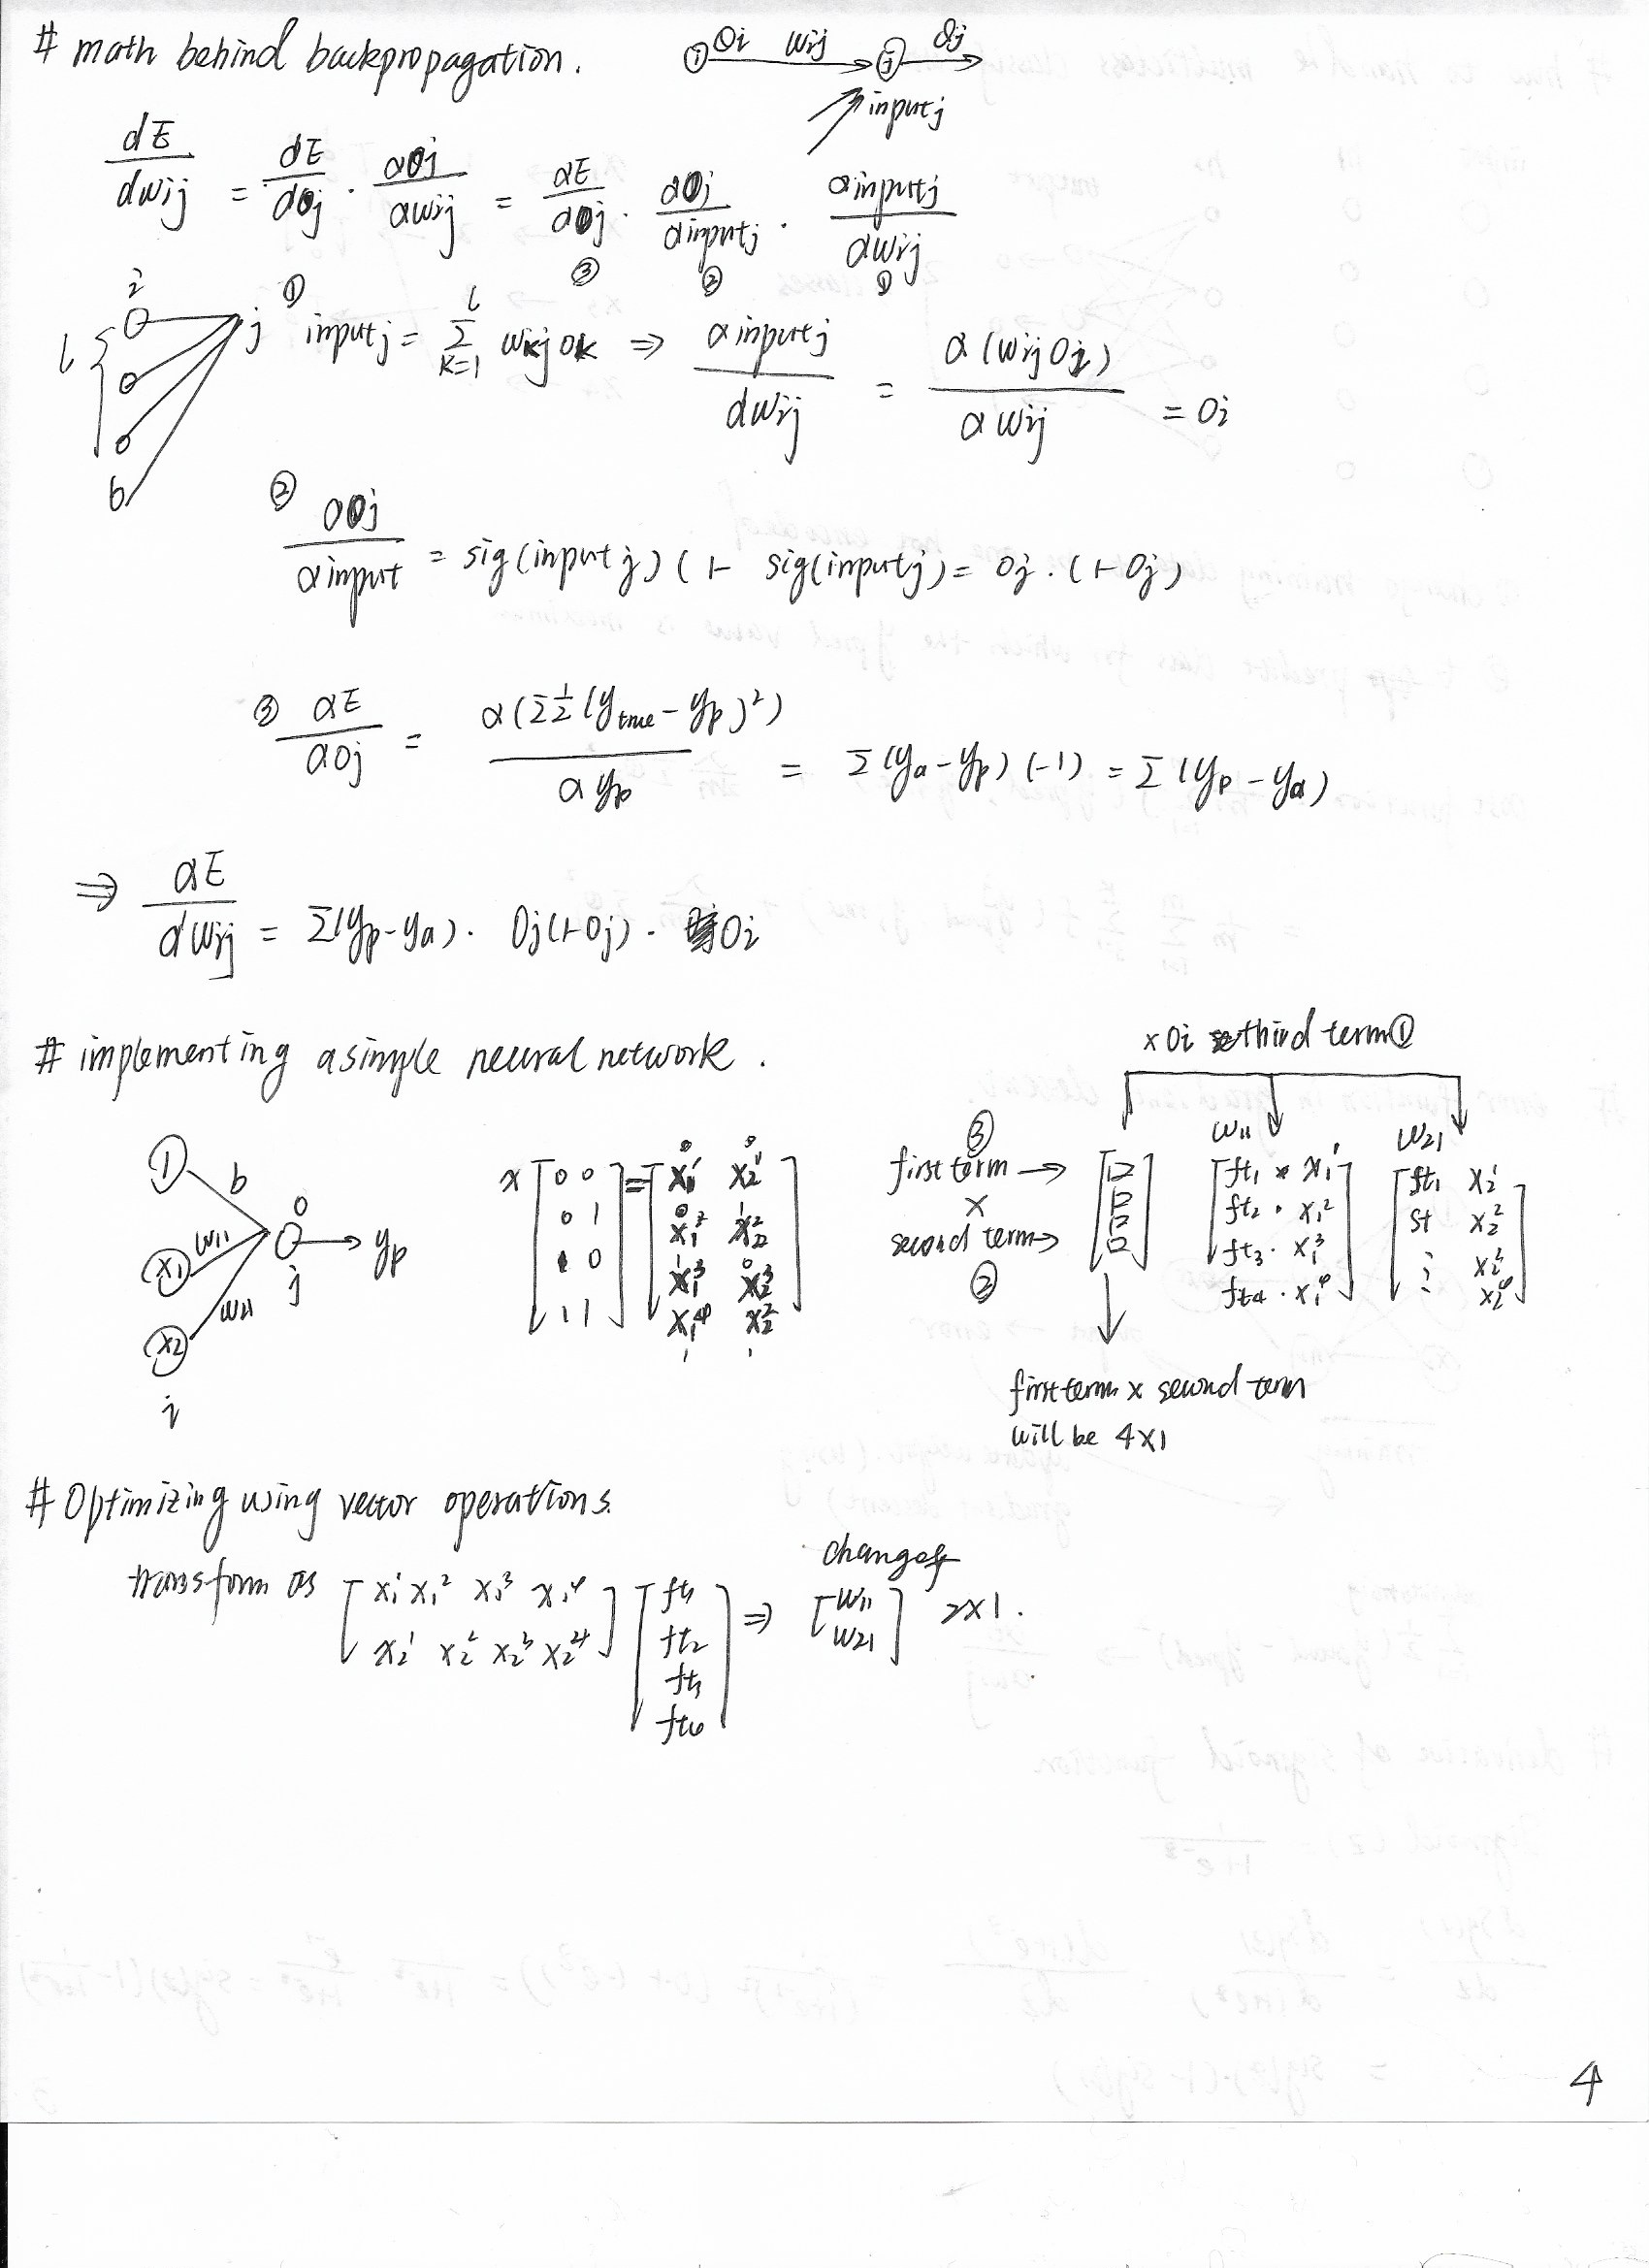 # math behind backpropagation.
i Oi wij j Oj
inputj
dE/dwij = dE/dOj · dOj/dwij = dE/dOj · dOj/dinputj · dinputj/dwij
③ ② ①
i l j b
① inputj = Σ_{k=1}^{l} wkj ok ⇒ dinputj/dwij = d(wij Oi)/dwij = Oi
② dOj/dinput = sig(inputj) (1- sig(inputj) = Oj · (1-Oj)
③ dE/dOj = d(Σ½(ytrue - yp)²)/dyp = Σ(ya - yp) (-1) = Σ(yp - ya)
⇒ dE/dwij = Σ(yp - ya) · Oj(1-Oj) · Oi
# implementing a simple neural network.
x Oi third term①
1 b
x1 w11 o j yp
x2 w21
i
x [0 0; 0 1; 1 0; 1 1] = [x₁¹ x₂¹; x₁² x₂²; x₁³ x₂³; x₁⁴ x₂²]
③
first term →
x
second term →
②
w11 [ft1 · x₁¹; ft2 · x₁²; ft3 · x₁³; ft4 · x₁⁴]
w21 [ft1 x₂¹; st x₂²; ⋮ x₂³; x₂⁴]
first term x second term
will be 4x1
# Optimizing using vector operations.
change of
transform as [x₁¹ x₁² x₁³ x₁⁴; x₂¹ x₂² x₂³ x₂⁴] [ft1; ft2; ft3; ft4] ⇒ [w11; w21] 2x1.
4